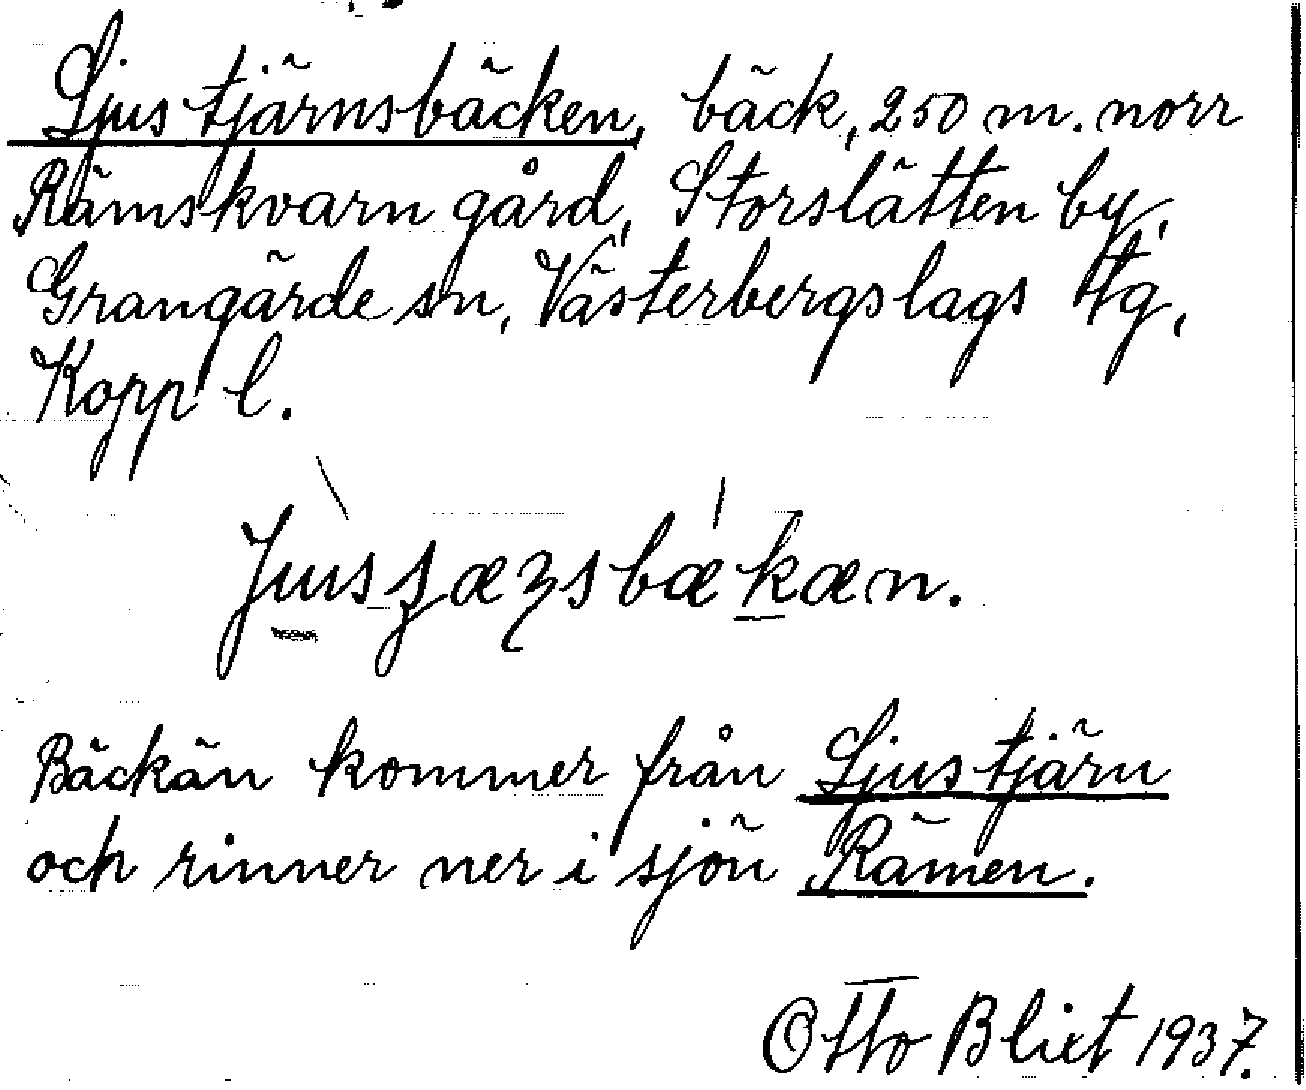 Ljustjärnsbäcken, bäck, 250 m. norr
Rämskvarn gård, Storslätten by,
Grangärde sn, Västerbergslags tg,
Kopp l.
Bäckän kommer från Ljustjärn
och rinner ner i sjön Rämen.
Otto Blixt 1937.